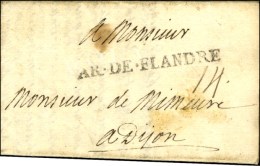 a Monsieur
AR·DE·FLANDRE
14.
Monsieur de Mimeure
a Dijon